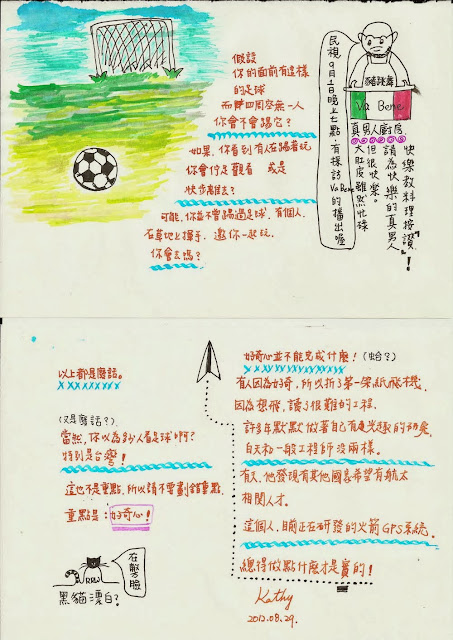 假設
你的面前有這樣
的足球
而且四周空無一人
你會不會踢它？
如果，你看到有人在踢著玩
你會佇足觀看 或是
快步離去？
可能，你並不會踢過足球，有個人，
在草地上揮手，邀你一起玩，
你會去嗎？
民視9月1日晚上七點，有採訪Va Bene的播出喔
豬跳舞
Va Bene
真男人廚房
大肚皮雖然忙碌
但很快樂。
請為快樂的真男人
快樂教料理按"讚"！
以上都是廢話。
(又是廢話？)
當然，你以為多少人看足球啊？
特別是台灣！
這也不是重點，所以請不要劃錯重點，
重點是：好奇心！
在敲方臉
黑貓漂白？
好奇心並不能完成什麼！(蛤？)
有人因為好奇，所以折了第一架紙飛機，
因為想飛，讀了很難的工程，
許多年默默做著自己有星光趣的功夫，
白天和一般工程師沒兩樣。
有天，他發現有其他國家希望有航太
相關人才。
這個人，目前正在研發的火箭GPS系統。
總得做點什麼才是真的！
Kathy
2012.08.29.